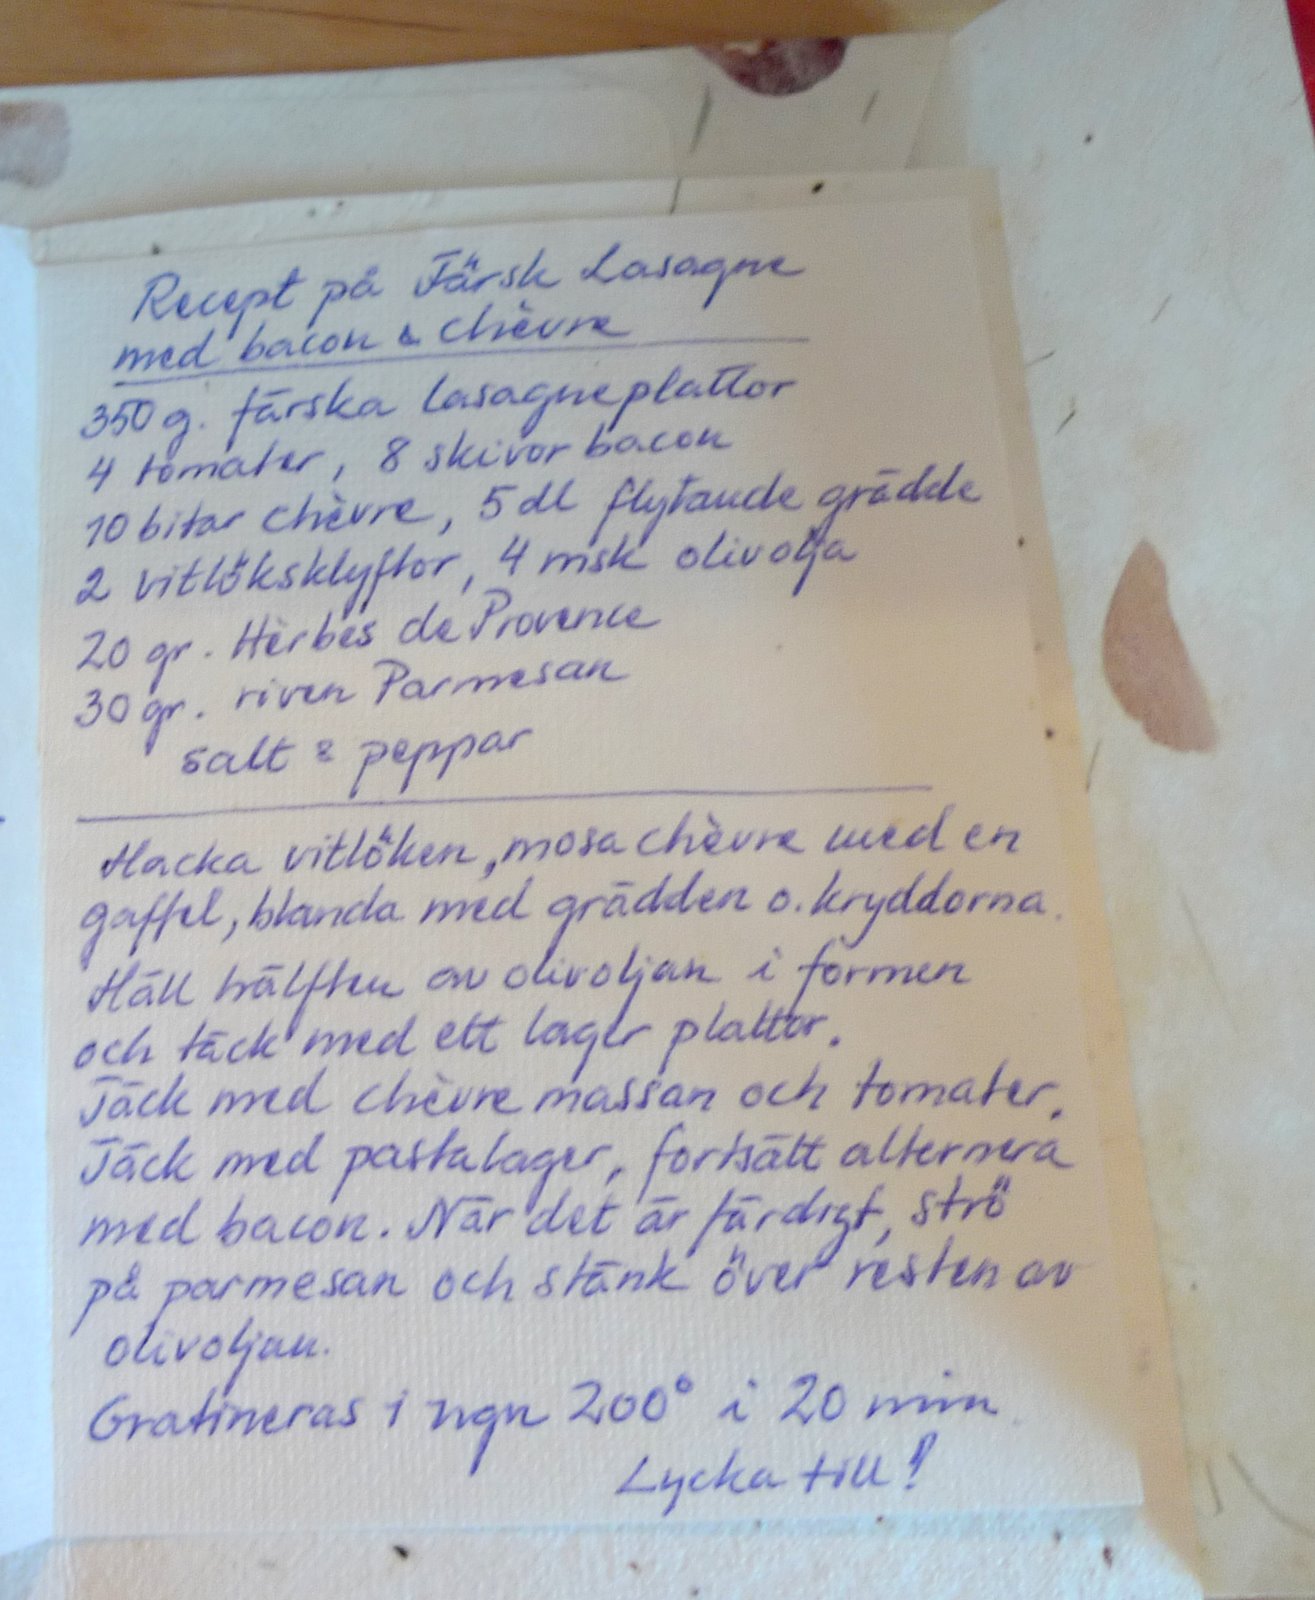 Recept på Färsk Lasagne
med bacon & chèvre
350 g. färska lasagneplattor
4 tomater, 8 skivor bacon
10 bitar chèvre, 5 dl flytande grädde
2 vitlöksklyftor, 4 msk olivolja
20 gr. Hèrbes de Provence
30 gr. riven Parmesan
salt & peppar
Hacka vitlöken, mosa chèvre med en
gaffel, blanda med grädden o. kryddorna.
Häll hälften av olivoljan i formen
och täck med ett lager plattor.
Täck med chèvre massan och tomater.
Täck med pastalager, fortsätt alternera
med bacon. När det är färdigt, strö
på parmesan och stänk över resten av
olivoljan.
Gratineras i ugn 200° i 20 min.
Lycka till!